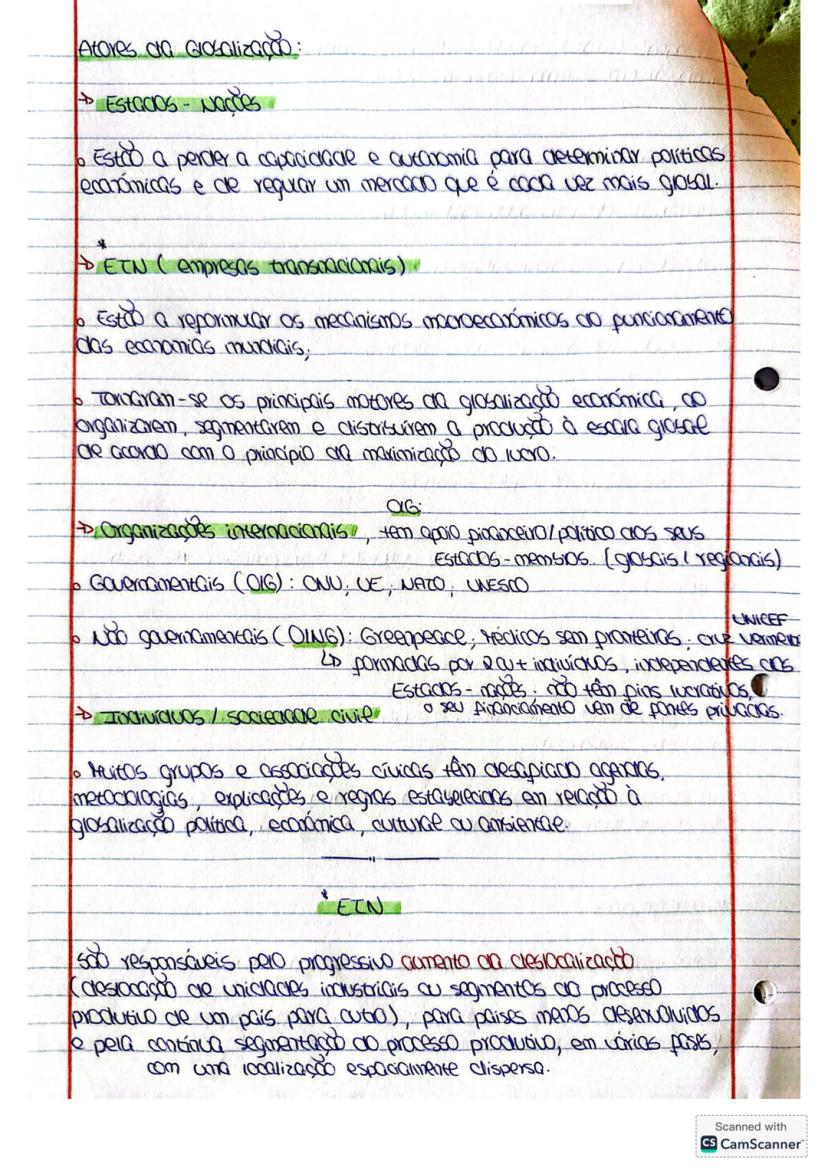 Atores da Globalização:
→ Estados - Nações
o Estão a perder a capacidade e autonomia para determinar políticas
económicas e de regular um mercado que é cada vez mais global.
*
→ ETN (empresas transnacionais)
o Estão a reformular os mecanismos macroeconómicos do funcionamento
das economias mundiais;
o Tornaram-se os principais motores da globalização económica, ao
organizarem, segmentarem e distribuírem a produção à escala global
de acordo com o princípio da maximização do lucro.
OIG:
→ Organizações internacionais, têm apoio financeiro/político dos seus
Estados-membros. (globais / regionais)
o Governamentais (OIG): ONU; UE; NATO; UNESCO
UNICEF
o Não governamentais (OING): Greenpeace; Médicos sem fronteiras; cruz vermelha
↳ formadas por 2 ou + indivíduos, independentes dos
Estados-nações; não têm fins lucrativos,
o seu financiamento vem de fontes privadas.
→ Indivíduos / sociedade civil
o Muitos grupos e associações cívicas têm desafiado agendas,
metodologias, explicações e regras estabelecidas em relação à
globalização política, económica, cultural ou ambiental.
——— " ———
* ETN
São responsáveis pelo progressivo aumento da deslocalização
(deslocação de unidades industriais ou segmentos do processo
produtivo de um país para outro), para países menos desenvolvidos
e pela contínua segmentação do processo produtivo, em várias fases,
com uma localização espacialmente dispersa.
Scanned with
CS CamScanner